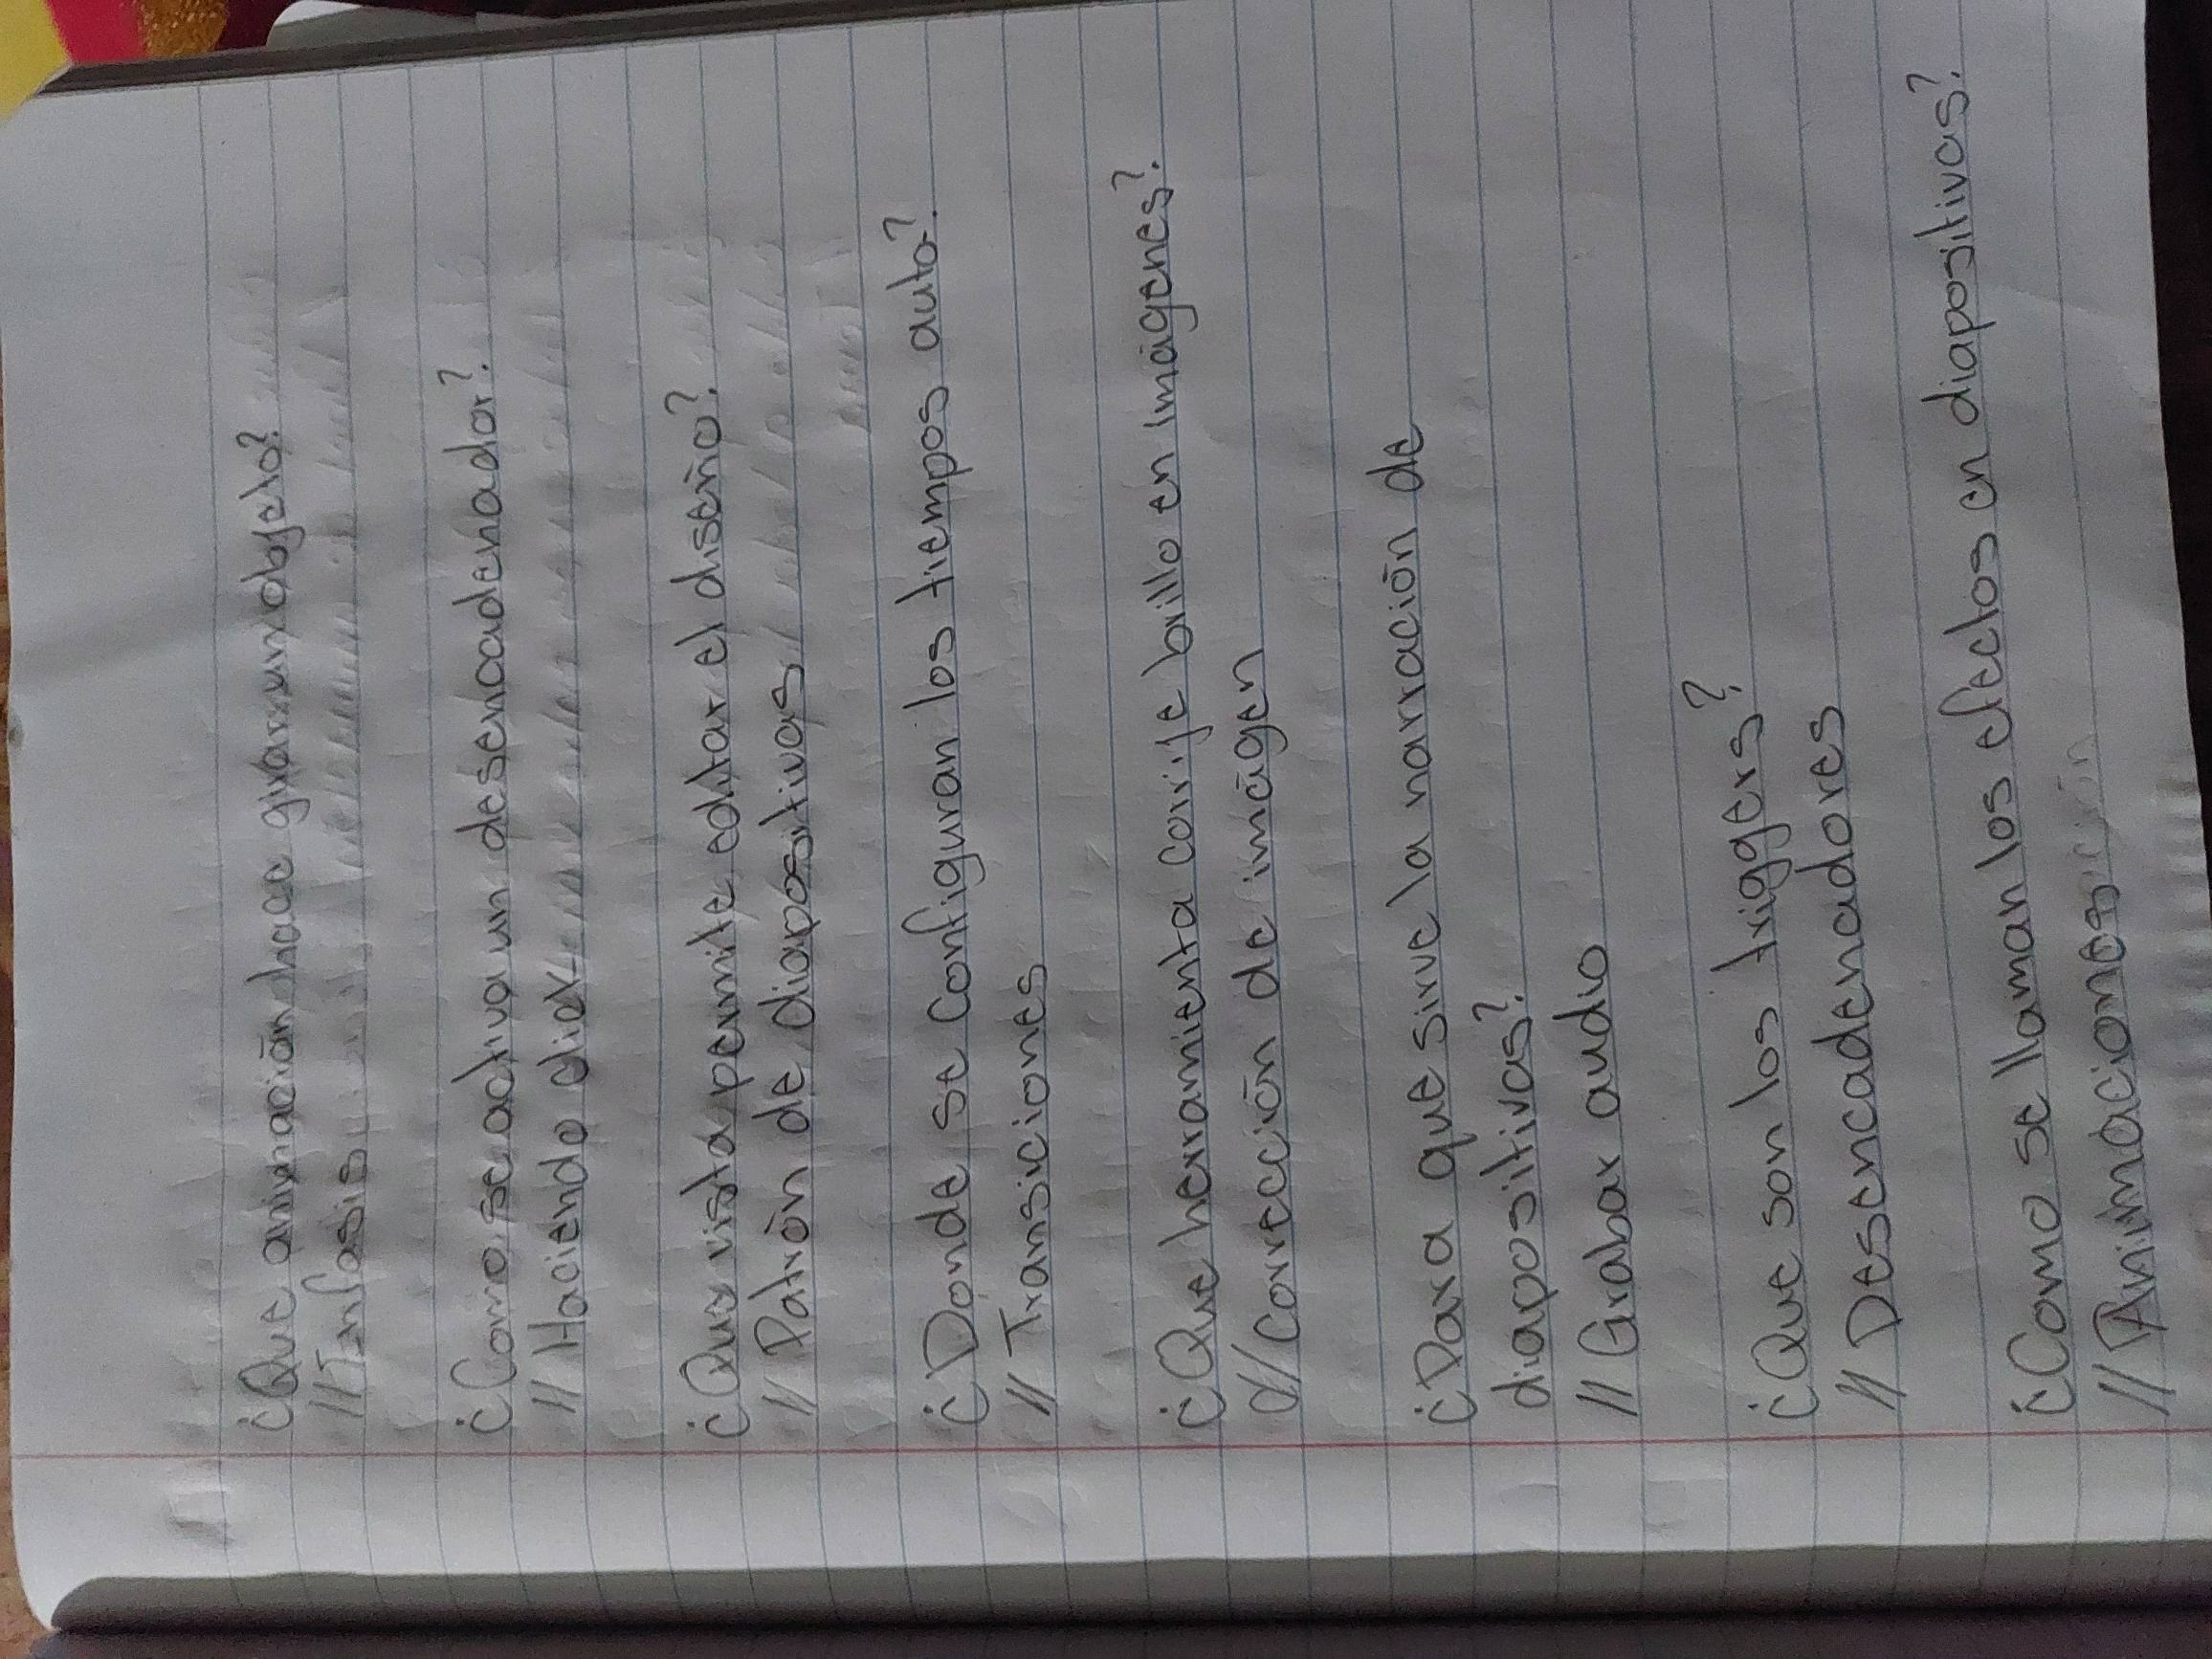 ¿Que animación hace girar un objeto?
// Enfasis
¿Como se activa un desencadenador?
// Haciendo click
¿Que vista permite editar el diseño?
// Patrón de diapositivas
¿Donde se configuran los tiempos auto?
// Transiciones
¿Que herramienta corrije brillo en imágenes?
// Corrección de imágen
¿Para que sirve la narración de
diapositivas?
// Grabar audio
¿Que son los triggers?
// Desencadenadores
¿Como se llaman los efectos en diapositivas?
// Animaciones